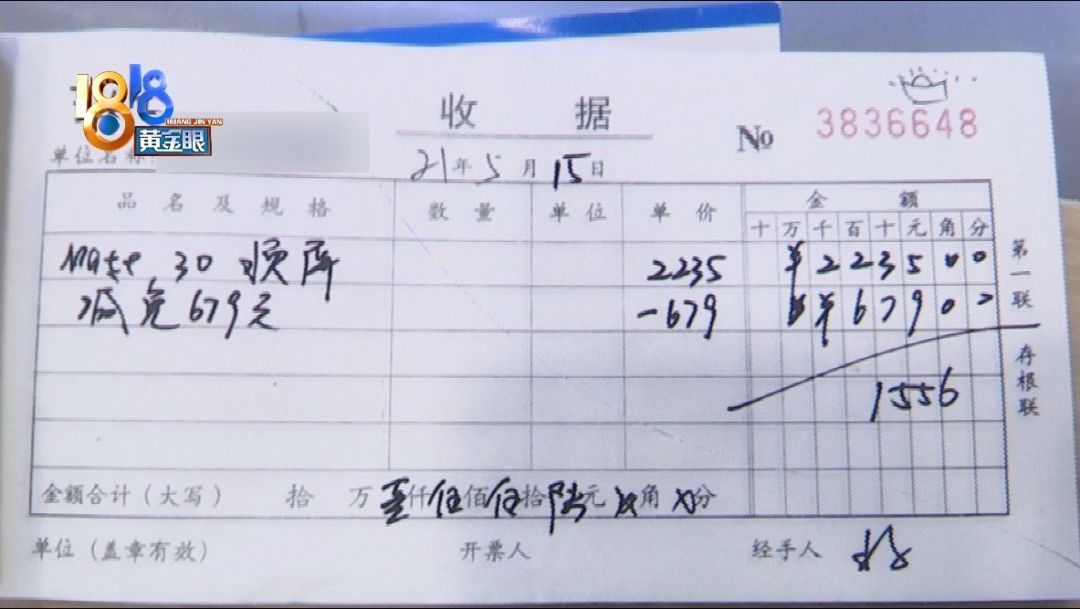 1818
HUANG JIN YAN
黄金眼
收 据
No 3836648
单位名称:
21年5月15日
品名及规格 数量 单位 单价 金额
十万千百十元角分
Mate 30 换屏 2235 ¥223500
减免679元 -679 ¥67900
1556
第一联 存根联
金额合计(大写) 拾 万壹仟伍佰伍拾陆元 角 分
单位(盖章有效) 开票人 经手人